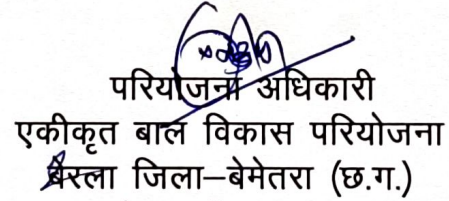 परियोजना अधिकारी
एकीकृत बाल विकास परियोजना
बेरला जिला–बेमेतरा (छ.ग.)